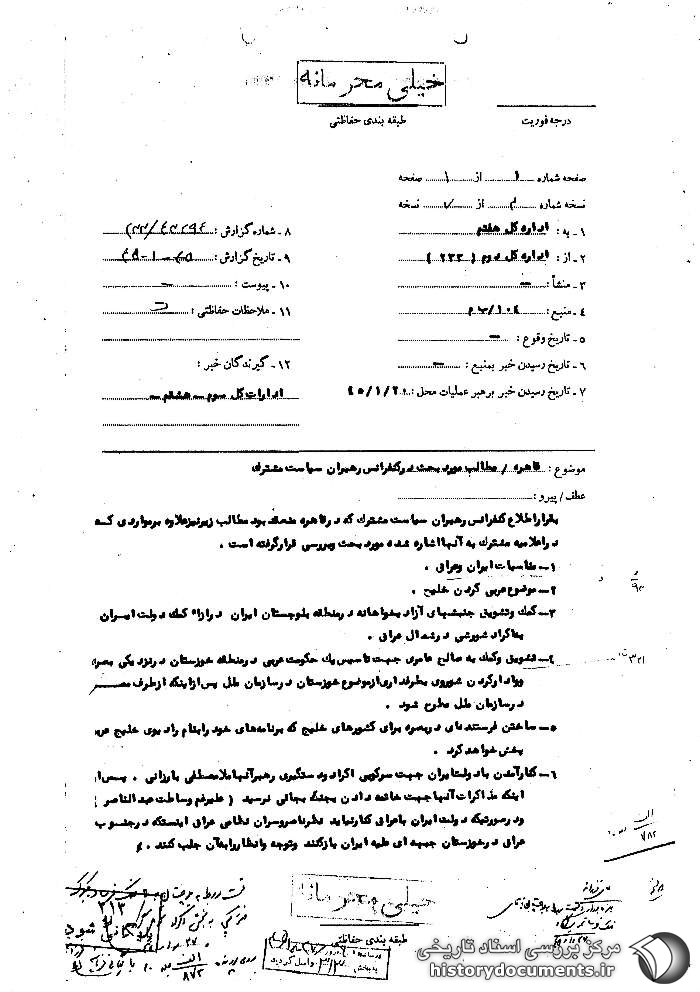 خیلی محرمانه
طبقه بندی حفاظتی
درجه فوریت
صفحه شماره ۱ از ۱ صفحه
نسخه شماره از ۷ نسخه
۱ - به : اداره کل هفتم
۲ - از : اداره کل دوم ( ۲۳۳ )
۳ - منشأ : -
۴ - منبع :
۵ - تاریخ وقوع : -
۶ - تاریخ رسیدن خبر بمنبع : -
۷ - تاریخ رسیدن خبر برهبر عملیات محل :
۸ - شماره گزارش :
۹ - تاریخ گزارش :
۱۰ - پیوست : -
۱۱ - ملاحظات حفاظتی :
۱۲ - گیرندگان خبر :
ادارات کل سوم - هشتم -
موضوع : قاهره / مطالب مورد بحث در کنفرانس رهبران سیاست مشترک
عطف / پیرو :
بقرار اطلاع کنفرانس رهبران سیاست مشترک که در قاهره منعقد بود مطالب زیر نیز علاوه بر مواردی که
در اعلامیه مشترک به آنها اشاره شده مورد بحث و بررسی قرار گرفته است .
۱ - مناسبات ایران و عراق .
۲ - موضوع عربی کردن خلیج .
۳ - کمک و تشویق جنبشهای آزادیخواهانه در منطقه بلوچستان ایران در ازاء کمک دولت ایران
به اکراد شورشی در شمال عراق .
۴ - تشویق و کمک به صالح عامری جهت تاسیس یک حکومت عربی در منطقه خوزستان در نزدیکی بصره
و وادار کردن شوروی بطرفداری از موضوع خوزستان در سازمان ملل پس از اینکه از طرف مصر
در سازمان ملل مطرح شود .
۵ - ساختن فرستنده ای در بصره برای کشورهای خلیج که برنامه های خود را بنام رادیوی خلیج عربی
پخش خواهد کرد .
۶ - کنار آمدن با دولت ایران جهت سرکوبی اکراد و دستگیری رهبر آنها ملامصطفی بارزانی . پس از
اینکه مذاکرات آنها جهت خاتمه دادن بجنگ بجائی نرسید ( علیرغم وساطت عبدالناصر )
و در صورتیکه دولت ایران با عراق کنار نیاید نظر ناصر و سران نظامی عراق اینستکه در جنوب
عراق در خوزستان جبهه ای علیه ایران باز کنند و توجه و انظار را به آن جلب کنند .
خیلی محرمانه
طبقه بندی حفاظتی
بایگانی شود
۳۱۳
مرکز بررسی اسناد تاریخی
historydocuments.ir